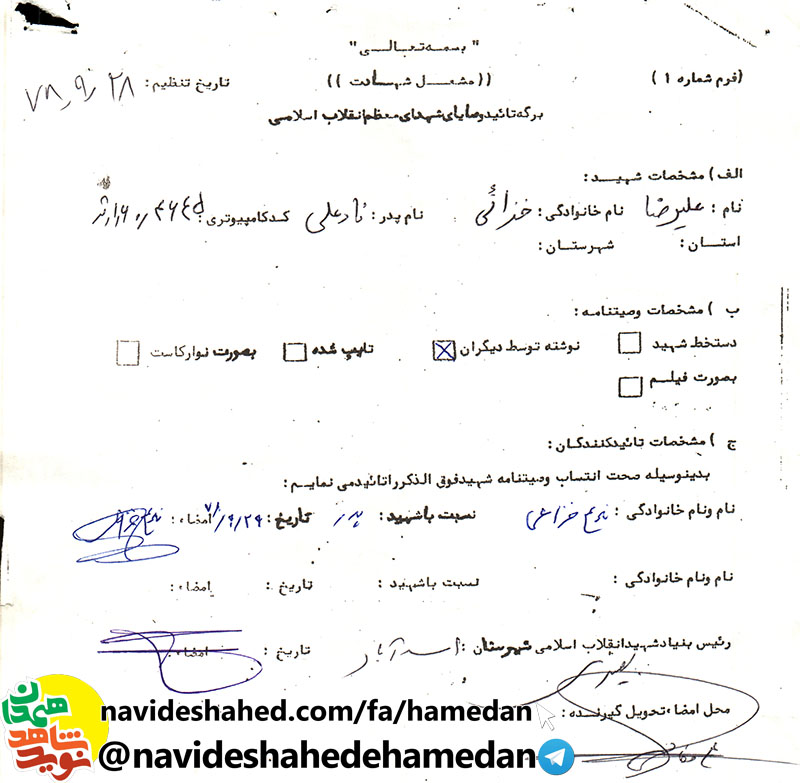 "بسمه تعالی"
(فرم شماره ۱) ((مشعل شهادت)) تاریخ تنظیم: ۷۸/۹/۲۸
برگه تائید وصایای شهدای معظم انقلاب اسلامی
الف) مشخصات شهید:
نام: علیرضا نام خانوادگی: خزائی نام پدر: نادعلی کدکامپیوتری:
استان: شهرستان:
ب) مشخصات وصیتنامه:
دستخط شهید نوشته توسط دیگران تایپ شده بصورت نوارکاست
بصورت فیلم
ج) مشخصات تائیدکنندگان:
بدینوسیله صحت انتساب وصیتنامه شهید فوق الذکر را تائید می نمایم:
نام ونام خانوادگی: خزاعی نسبت باشهید: پدر تاریخ: ۷۸/۹/۲۹ امضاء:
نام ونام خانوادگی: نسبت باشهید: تاریخ: امضاء:
رئیس بنیاد شهید انقلاب اسلامی شهرستان: اسدآباد تاریخ: امضاء:
محل امضاء تحویل گیرنده:
نوید شاهد همدان
navideshahed.com/fa/hamedan
@navideshahedehamedan